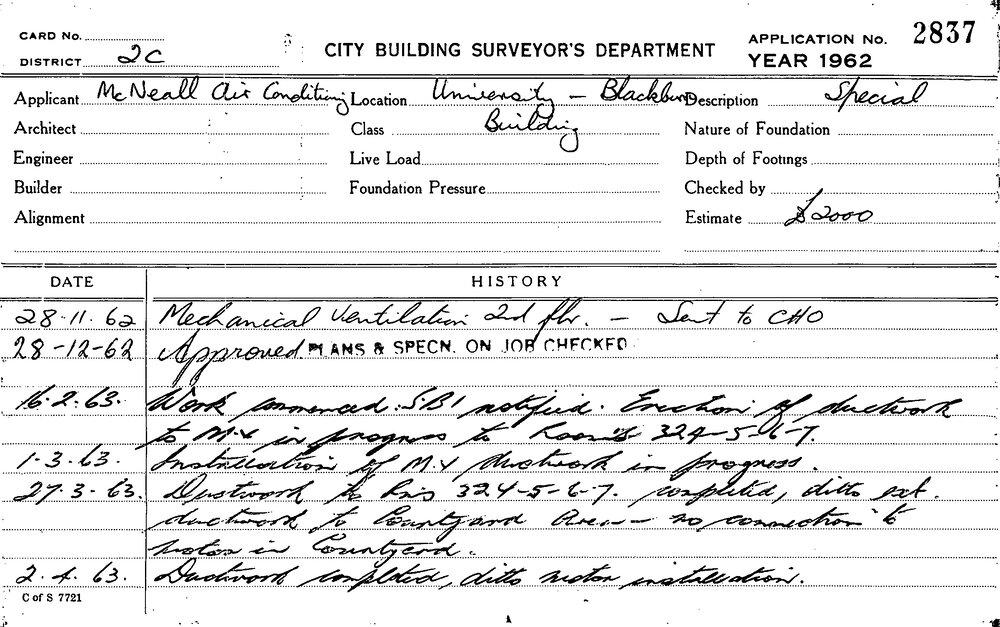 CARD No.
DISTRICT 2C
CITY BUILDING SURVEYOR'S DEPARTMENT
APPLICATION No. 2837
YEAR 1962
Applicant McNeall Air Conditiing Location University – Blackburn Description Special
Architect Class Building Nature of Foundation
Engineer Live Load Depth of Footings
Builder Foundation Pressure Checked by
Alignment Estimate £2000
DATE HISTORY
28-11-62 Mechanical Ventilation 2nd flr. – Sent to CHO
28-12-62 Approved PLANS & SPECN. ON JOB CHECKED
16.2.63. Work commenced. SBI notified. Erection of ductwork
to M.V in progress to Rooms 324-5-6-7.
1.3.63. Installation of M.V ductwork in progress.
27.3.63. Ductwork to Rms 324-5-6-7. completed, ditto ext.
ductwork to Courtyard Area – no connection to
motor in Courtyard.
2.4.63. Ductwork completed, ditto motor installation.
C of S 7721